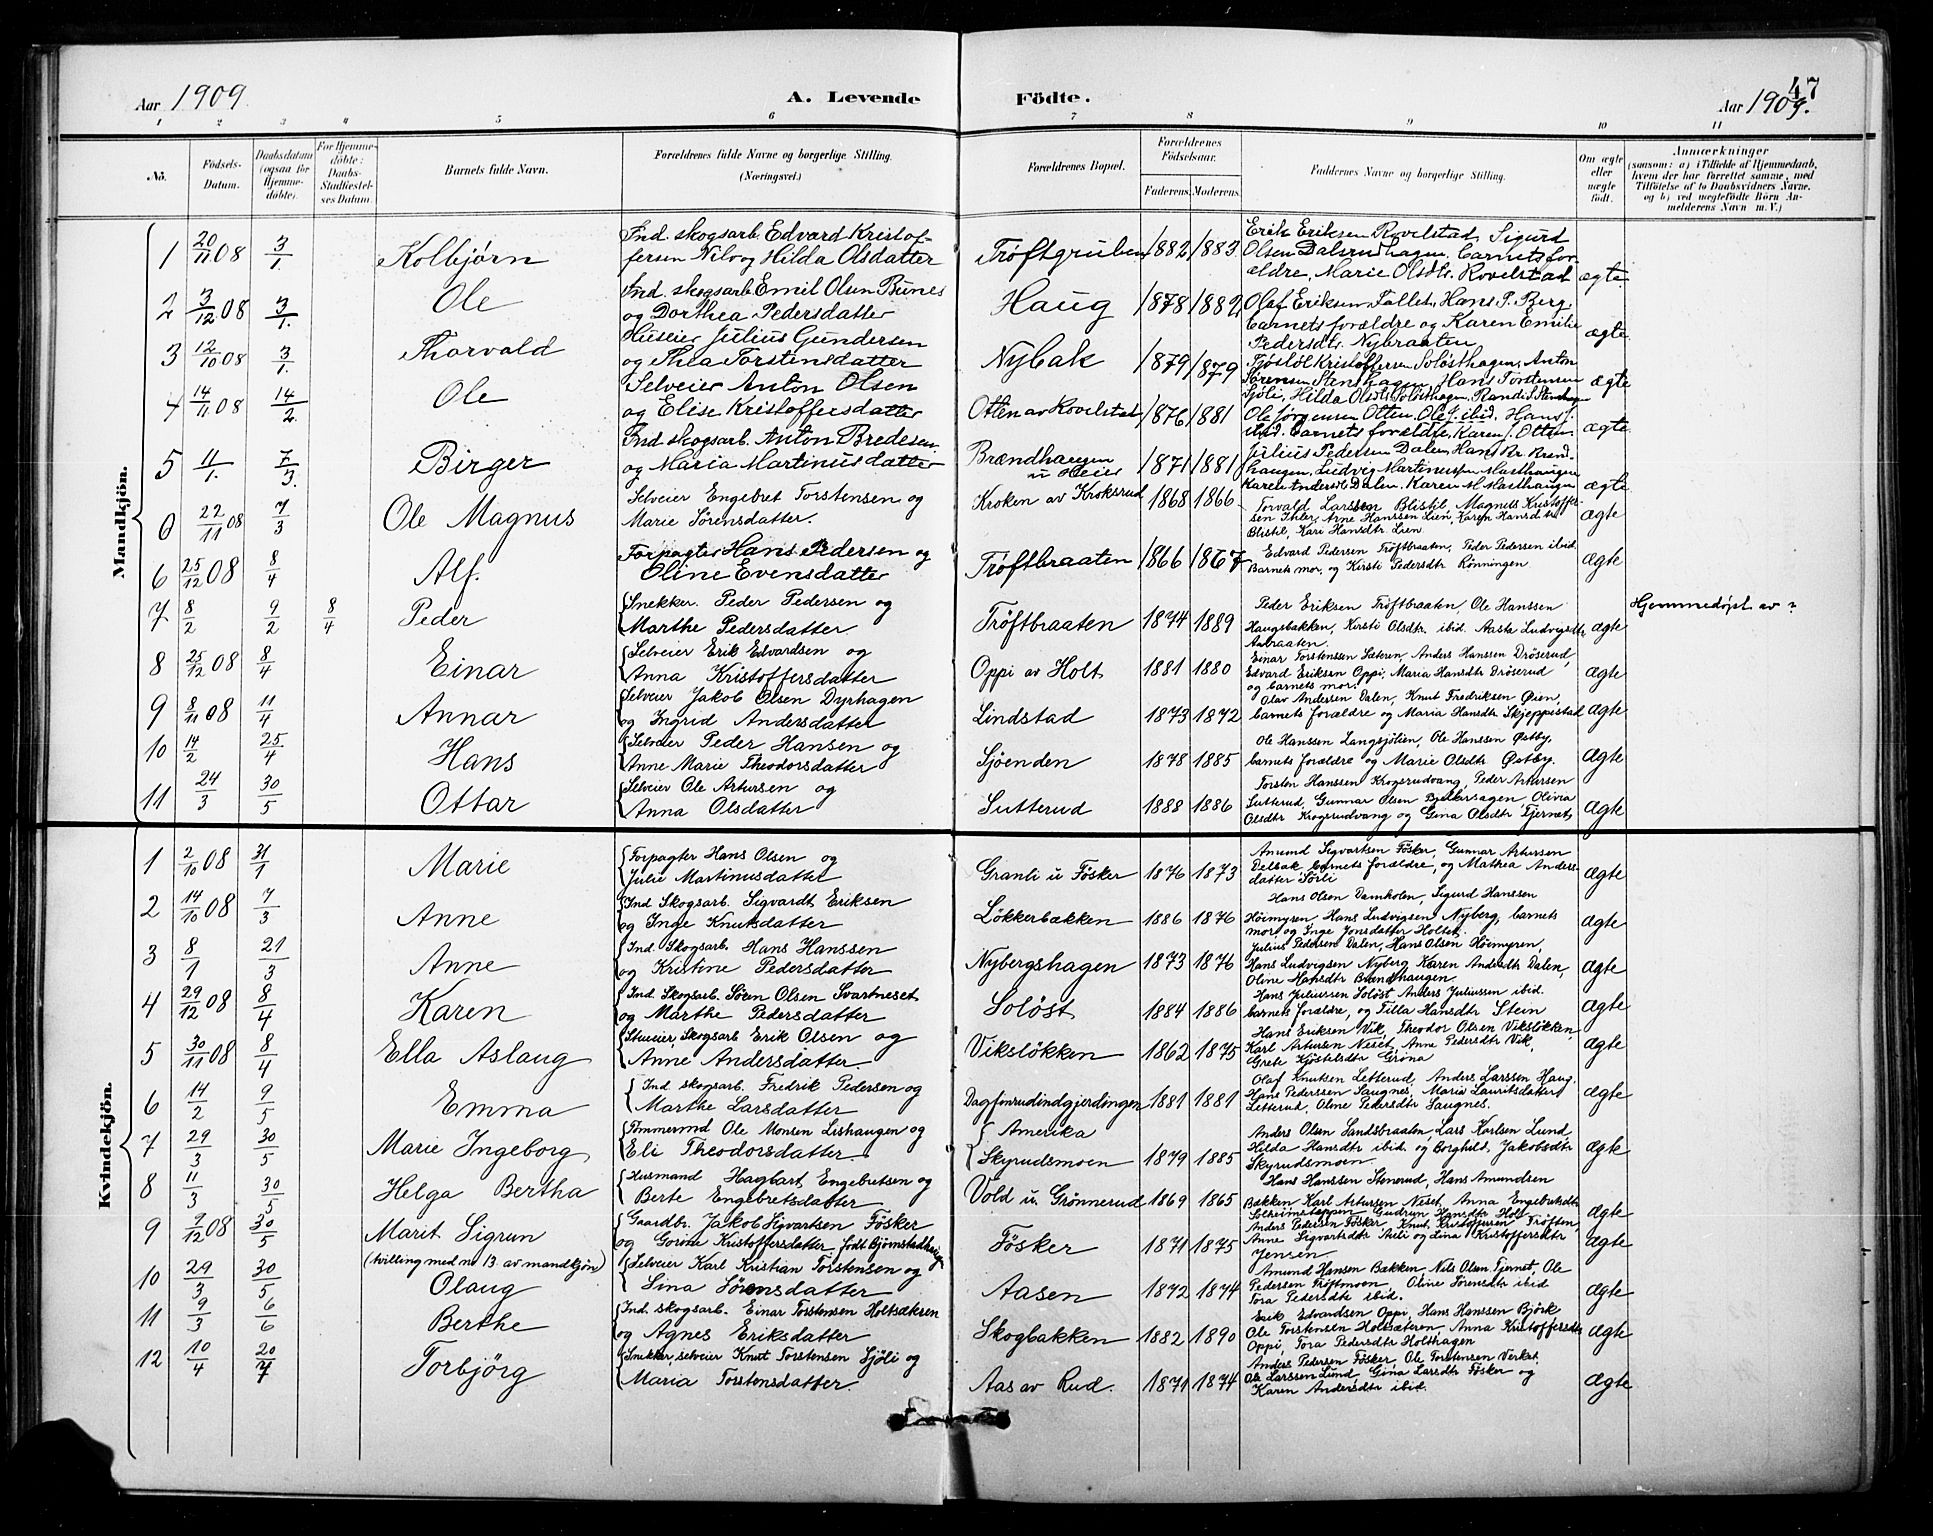 47
Aar 1909
A. Levende Fødte.
Aar 1909.
1 2 3 4 5 6 7 8 9 10 11
No.
Fødsels-Datum.
Daabsdatum (ogsaa for Hjemmedøbte).
For Hjemmedøbte: Daabs-Stadfestelses Datum.
Barnets fulde Navn.
Forældrenes fulde Navne og borgerlige Stilling. (Næringsvei.)
Forældrenes Bopæl.
Forældrenes Fødselsaar.
Faderens. Moderens.
Faddernes Navne og borgerlige Stilling.
Om ægte eller uægte født.
Anmærkninger
(saasom: a) i Tilfælde af Hjemmedaab, hvem der har forrettet samme, med Tilføielse af to Daabsvidners Navne. og b) ved uægtefødte Børn Anmelderens Navn m. V.)
Mandkjön.
1 20/11 08 3/1. Kolbjørn Ind. skogsarb. Edvard Kristoffersen Nilo og Hilda Olsdatter Trøftgruben 1882 1883 Erik Eriksen Rovelstad, Sigurd Olsen Dalsrudhagen, barnets forældre, Marie Olsdtr. Rovelstad ægte
2 3/12 08 3/1. Ole Ind. skogsarb. Emil Olsen Bunes og Dorthea Pedersdatter Haug 1878 1882 Olaf Eriksen Fallet, Hans P. Berg, barnets forældre og Karen Emilie Pedersdtr. Nybraaten ægte
3 12/10 08 3/1. Thorvald Huseier Julius Gundersen og Thea Torstensdatter Nybak 1879 1879 Tjøstol Kristoffersen Soløsthagen, Anton Sørensen Stenshagen, Hans Torstensen Sjøli, Hilda Olsdtr. Soløsthagen, Randi S. Stenshagen ægte
4 14/11 08 14/2. Ole Selveier Anton Olsen og Elise Kristoffersdatter Otten av Rovelstad 1876 1881 Ole Jørgensen Otten, Ole J. ibid. Hans J. ibid. barnets forældre, Karen J. Otten. ægte
5 11/1. 7/3. Birger Ind. skogsarb. Anton Bredesen og Maria Martinusdatter Brændhaugen u Meier 1871 1881 Julius Pedersen Dalen, Hans Kr. Brendhaugen, Ludvig Martinussen Masthaugen Karen Andersdtr. Dalen. Karen M. Masthaugen ægte
0 22/11 08 7/3 Ole Magnus Selveier Engebret Torstensen og Marie Sørensdatter. Kroken av Kroksrud 1868 1866 Torvald Larssen Blistil, Magnus Kristoffersen Ihler, Arne Hanssen Lien, Karen Hansdtr. Blistil, Kari Hansdtr. Lien ægte
6 25/12 08 8/4 Alf. Forpagter Hans Pedersen og Oline Evensdatter Trøftbraaten 1866 1867 Edvard Pedersen Trøftbraaten, Peder Pedersen ibid. Barnets mor, og Kirsti Pedersdtr Rønningen ægte
7 8/2 9/2 8/4 Peder Snekker. Peder Pedersen og Marthe Pedersdatter Trøftbraaten 1874 1889 Peder Eriksen Trøftbraaten, Ole Hanssen Haugsbakken, Kirsti Olsdtr. ibid. Aasta Ludvigsdtr. Aabraaten. ægte Hjemmedøpt av ?
8 25/12 08 8/4 Einar Selveier Erik Edvardsen og Anna Kristoffersdatter Oppi av Holt 1881 1880 Einar Torstenssen Sæteren, Anders Hanssen Drøserud, Edvard Eriksen Oppi, Maria Hansdtr Drøserud og barnets mor. ægte
9 8/11 08 11/4 Annar Selveier Jakob Olsen Dyrhagen og Ingrid Andersdatter Lindstad 1873 1872 Olav Andersen Dalen, Knut Fredriksen Øien, barnets forældre og Maria Hansdtr Skjeppestad ægte
10 14/2 25/4 Hans Selveier Peder Hansen og Anne Marie Theodorsdatter Sjøenden 1878 1885 Ole Hanssen Langsjølien, Ole Hanssen Østby, barnets forældre og Marie Olsdtr Østby. ægte
11 24/3 30/5 Ottar Selveier Ole Artursen og Anna Olsdatter Sutterud 1888 1886 Torsten Hanssen Krogsrudvang, Peder Artursen Sutterud, Gunnar Olsen Bjølkersagen, Olivia Olsdtr Krogsrudvang og Gina Olsdtr Tjernet ægte
Kvindekjön.
1 2/10 08 31/1 Marie Forpagter Hans Olsen og Julie Martinusdatter Granli u Føsker 1876 1873 Amund Sigvartsen Føsker, Gunnar Artursen Delbak, barnets forældre, og Mathea Andersdatter Sørli ægte
2 14/10 08 7/3 Anne Ind Skogsarb. Sigvardt Eriksen og Inge Knutsdatter Løkkerbækken 1886 1876 Hans Olsen Damholen, Sigurd Hanssen Høimyren, Hans Ludvigsen Nyberg, barnets mor og Inge Jonsdatter Holtet. ægte
3 8/1 21/3 Anne Ind. Skogsarb. Hans Hanssen og Kristine Pedersdatter Nybergshagen 1873 1876 Julius Pedersen Dalen, Hans Olsen Høimyren, Hans Ludvigsen Nyberg, Karen Andersdtr Dalen, Oline Hansdtr Brændhaugen ægte
4 29/12 08 8/4 Karen Ind. Skogsarb. Søren Olsen Svartneset og Marthe Pedersdatter Soløst 1884 1886 Hans Juliussen Soløst, Anders Juliussen ibid. barnets forældre, og Tilla Hansdtr Stein ægte
5 30/11 08 8/4 Ella Aslaug Stueier, Skogsarb Erik Olsen og Anne Andersdatter. Viksløkken 1862 1875 Hans Eriksen Vik, Theodor Olsen Viksløkken, Karl Artursen Neset, Anne Pedersdtr Vik, Grete Kjøstelsdtr Grøna ægte
6 14/2 9/5 Emma Ind skogsarb. Fredrik Pedersen og Marthe Larsdatter Dagfinrudindgjerdingen 1881 1881 Olaf Knutsen Letterud, Anders Larssen Haug. Hans Pederssen Saugnes, Maria Lauritsdatter Letterud, Oline Pedersdtr Saugnes. ægte
7 29/3 30/5 Marie Ingeborg Tømmermd Ole Monsen Lishaugen og Eli Theodorsdatter. Amerika Skyrudsmoen 1879 1885 Anders Olsen Sandsbraaten, Lars Karlsen Lund, Hilda Hansdtr ibid. og Borghild, Jakobsdtr Skyrudsmoen ægte
8 11/3 30/5 Helga Bertha Husmand Hagbart Engebretsen og Berte Engebretsdatter Vold u. Grønnerud 1869 1865 Hans Hanssen Stenerud, Hans Amundsen Bækken, Karl Artursen Neset, Anna Engebretsdtr Solheimsteppen, Gudrun Hansdtr Holt ægte
9 9/12 08 30/5 Marit Sigrun (tvilling med no 13. av mandkjøn) Gaardbr. Jakob Sigvartsen Føsker og Gorine Kristoffersdatter født Bjørnstadhaug Føsker 1871 1875 Anders Pedersen Føsker, Knut Kristoffersen Trøften, Anne Sigvartsdtr Aali og Lina Kristoffersdtr Jensen ægte
10 29/3 30/5 Olaug Selveier Karl Kristian Torstensen og Lina Sørensdatter Aasen 1872 1874 Amund Hansen Bækken, Nils Olsen Tjernet, Ole Pedersen Trøftmoen, Oline Sørensdtr ibid Tora Pedersdtr ibid. ægte
11 9/3 6/6 Berthe Ind. skogsarb. Einar Torstensen Holtsæteren og Agnes Eriksdatter Skogbakken 1882 1890 Erik Edvardsen Oppi, Hans Hanssen Bjørk Ole Torstensen Holtsæteren Anna Kristoffersdtr Oppi, Tora Pedersdtr Holthagen ægte
12 10/4 20/7 Torbjörg Snekker, selveier Knut Torstensen Sjöli og Maria Torstensdatter. Aas av Rud. 1871 1874 Anders Pedersen Føsker, Ole Torstensen Verket, Ole Larssen Lund, Gina Larsdtr Føsker og Karen Andersdtr ibid. ægte